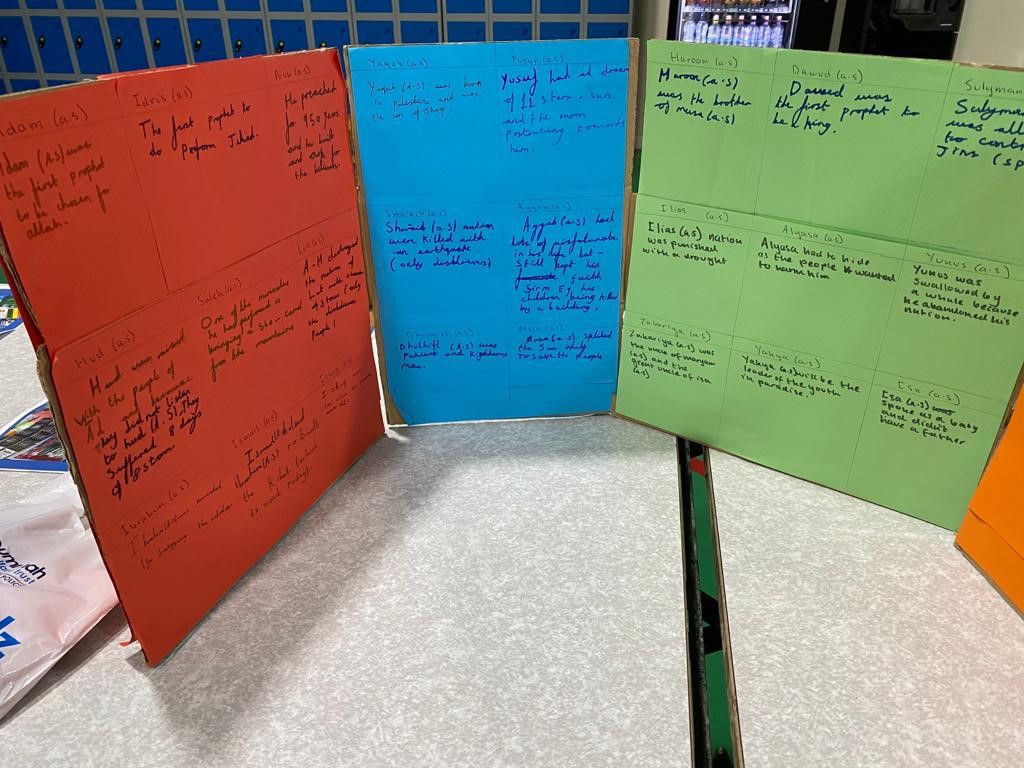 Adam (a.s)
Adam (A.S) was
the first prophet
to be chosen for
allah.
Idris (as)
The first prophet to
do Preform Jihad.
Nuh (a.s)
He preached
for 950 years
and he built
and ark for
the believers.
Hud (a.s)
Hud was sent
with the people of
Ad and because
they did not listen
to hud (A.S). They
Suffered 8 days
of 8 storm
Saleh (a.s)
One of the miracles
he had performed is
bringing a she-camel
from the mountains
Lut (a.s)
Allah destroyed
the nation of
lut with a
Stone (only
the disbelievers
People)
Ibrahim (a.s)
Ibrahim (A.S) was punished
for destroying the idols
Ismail (a.s)
Ismail and
ibrahim (A.S) re built
the Kabah (which
is used today).
Yaqob (a.s)
Yaqub (A.S) was born
in palestine and was
the son of ishaq.
Yusuf (a.s)
Yusuf had a dream
of 11 stars, sun
and the moon
postrating towards
him.
Shuiaib (a.s)
Shuaib (a.s) nation
were killed with
an earthquake
(only disblivers)
Ayyub (a.s)
Ayyub (a.s) had
lots of misfortunate
in his life but
Still kept his
faith
firm E.g. his
children being killed
by a building.
Dhulkifl (a.s)
Dhulkifl (A.S) was
patient and Righteous
man.
Musa (a.s)
Musa (a.s) splited
the Sea
to save the people
Haroon (a.s)
Haroon (a.s)
was the brother
of musa (a.s)
Dawud (a.s)
Dawud was
the first prophet to
be king.
Sulyman
Sulyman
was all
to cont
Jins (sp
Ilias (a.s)
Ilias (a.s) nation
was punished
with a drought
Alyasa (a.s)
Alyasa had to hide
as the people wanted
to harm him
Yunus (a.s)
Yunus was
swallowed by
a whale because
he abandoned his
nation.
Zakariya (a.s)
Zakariya (a.s) was
the uncle of maryam
(a.s) and the
great uncle of isa
(a.s)
Yahya (a.s)
Yahya (a.s) will be the
leader of the youth
in paradise.
Isa (a.s)
Isa (a.s) was
spoke as a baby
and didn't
have a father